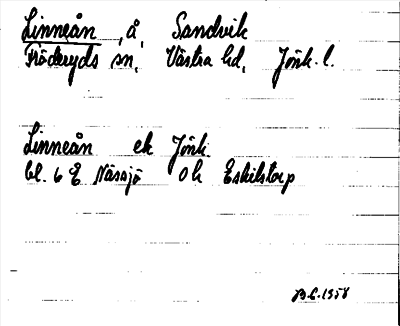 Linneån, å, Sandvik
Fröderyds sn, Västra hd, Jönk. l.
Linneån ek Jönk.
bl. 6 E Nässjö ok Eskilstorp
B.G. 1958